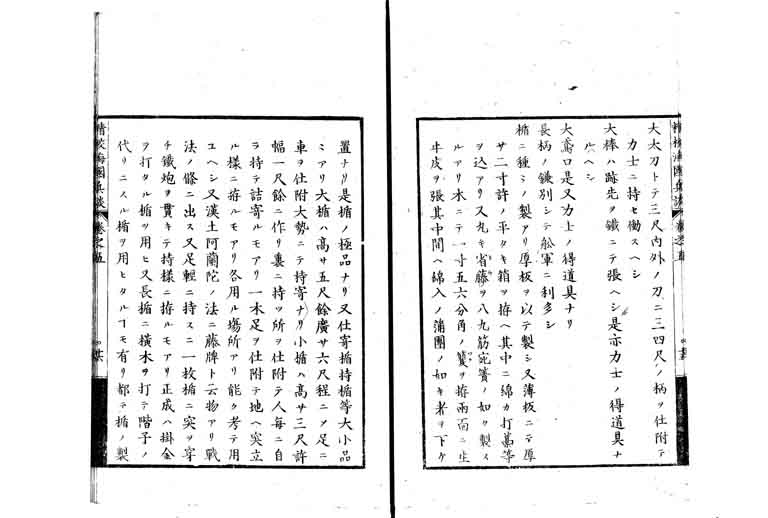 大太刀トテ三尺内外ノ刀ニ三四尺ノ柄ヲ仕附テ
力士ニ持セ働スヘシ
大棒ハ跡先ヲ鐵ニテ張ヘシ是亦力士ノ得道具ナ
ルヘシ
大鳶口是又力士ノ得道具ナリ
長柄ノ鎌別シテ舩軍ニ利多シ
楯ニ種々ノ製アリ厚板ヲ以テ製シ又薄板ニテ厚
サ二寸許ノ平タキ箱ヲ拵ヘ其中ニ綿カ打藁等
ヲ込アリ又丸キ省藤ヲ八九筋宛簀ノ如ク製ス
ルアリ木ニテ一寸五六分角ノ簀ヲ拵両面ニ生
牛皮ヲ張其中間ヘ綿入ノ蒲團ノ如キ者ヲ下ケ
精校海國兵談 卷之五
置ナリ是楯ノ極品ナリ又仕寄楯持楯等大小品
ミアリ大楯ハ高サ五尺餘廣サ六尺程ニノ足ニ
車ヲ仕附大勢ニテ持寄ナリ小楯ハ高サ三尺許
幅一尺餘ニ作リ裏ニ持ツ所ヲ仕附テ人毎ニ自
ラ持テ詰寄ルモアリ一木足ヲ仕附テ地ヘ突立
ル樣ニ拵ルモアリ各用ル場所アリ能ク考テ用
ユヘシ又漢土阿蘭陀ノ法ニ藤牌ト云物アリ戰
法ノ條ニ出ス又足輕ニ持スニ一枚楯ニ突ヲ穿
チ鐵炮ヲ貫キテ持樣ニ拵ルモアリ正成ハ掛金
ヲ打タル楯ヲ用ヒ又長楯ニ橫木ヲ打テ階子ノ
代リニスル楯ヲ用ヒタルヿモ有リ都テ楯ノ製
精校海國兵談 卷之五